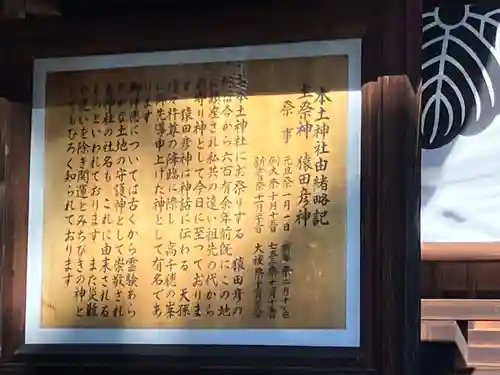 本土神社由緒略記
主祭神 猿田彦神
祭事
元旦祭一月一日
例大祭十月十日
新嘗祭十一月
七五三祭十一月十五日
大祓祭
本土神社にお祭りする 猿田彦の
神は今から六百有余年前既にこの地
に鎮座され私共の遠い祖先の代から
お守り神として今日に至っておりま
す 猿田彦神は神話に伝わる 天孫
瓊々杵尊の降臨に際し 高千穂の峯
に御先導申上げた神として有名であ
ります
御神徳については古くから霊験あら
たかな土地の守護神として崇敬され
本土神社の社名も これに由来される
ものといわれております また災難
や厄いを除き開運とみちびきの神と
してもひろく知られております